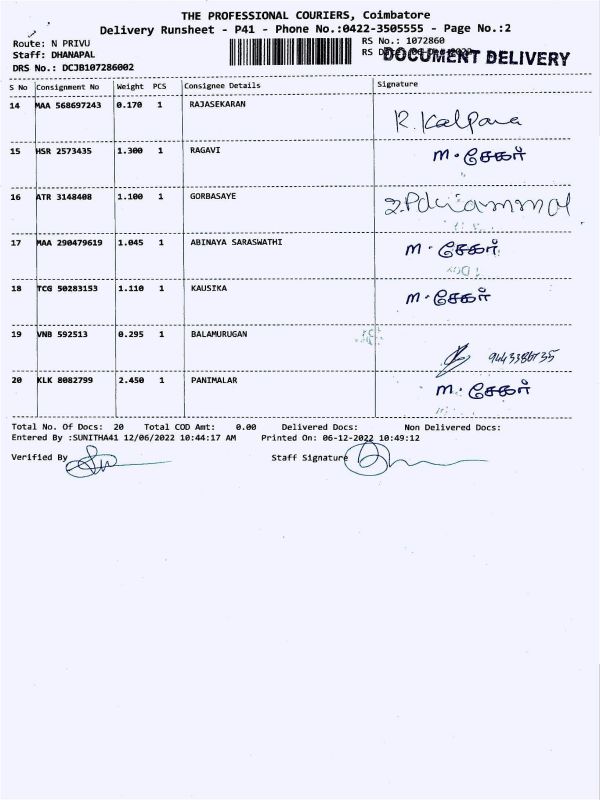 THE PROFESSIONAL COURIERS, Coimbatore
Delivery Runsheet - P41 - Phone No.:0422-3505555 - Page No.:2
Route: N PRIVU
Staff: DHANAPAL
DRS No.: DCJB107286002
RS No.: 1072860
DOCUMENT DELIVERY
S No Consignment No Weight PCS Consignee Details Signature
14 MAA 568697243 0.170 1 RAJASEKARAN R. Kalpana
15 HSR 2573435 1.300 1 RAGAVI M. சேகர்
16 ATR 3148408 1.100 1 GORBASAYE
17 MAA 290479619 1.045 1 ABINAYA SARASWATHI M. சேகர்
18 TCG 50283153 1.110 1 KAUSIKA M. சேகர்
19 VNB 592513 0.295 1 BALAMURUGAN
20 KLK 8082799 2.450 1 PANIMALAR M. சேகர்
Total No. Of Docs: 20 Total COD Amt: 0.00 Delivered Docs: Non Delivered Docs:
Entered By :SUNITHA41 12/06/2022 10:44:17 AM Printed On: 06-12-2022 10:49:12
Verified By Staff Signature